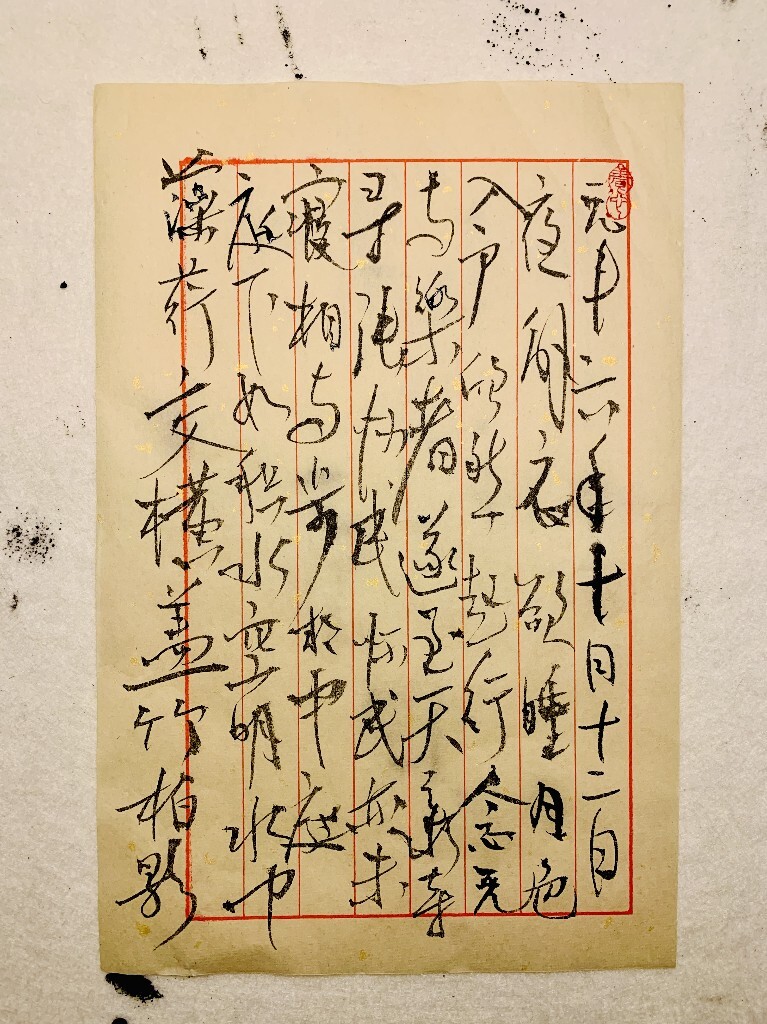 元丰六年十月十二日
夜解衣欲睡月色
入户欣然起行念无
与樂者遂至天寺
寻張怀民怀民亦未
寢相与步於中庭
庭下如积水空明水中
藻荇交横蓋竹柏影